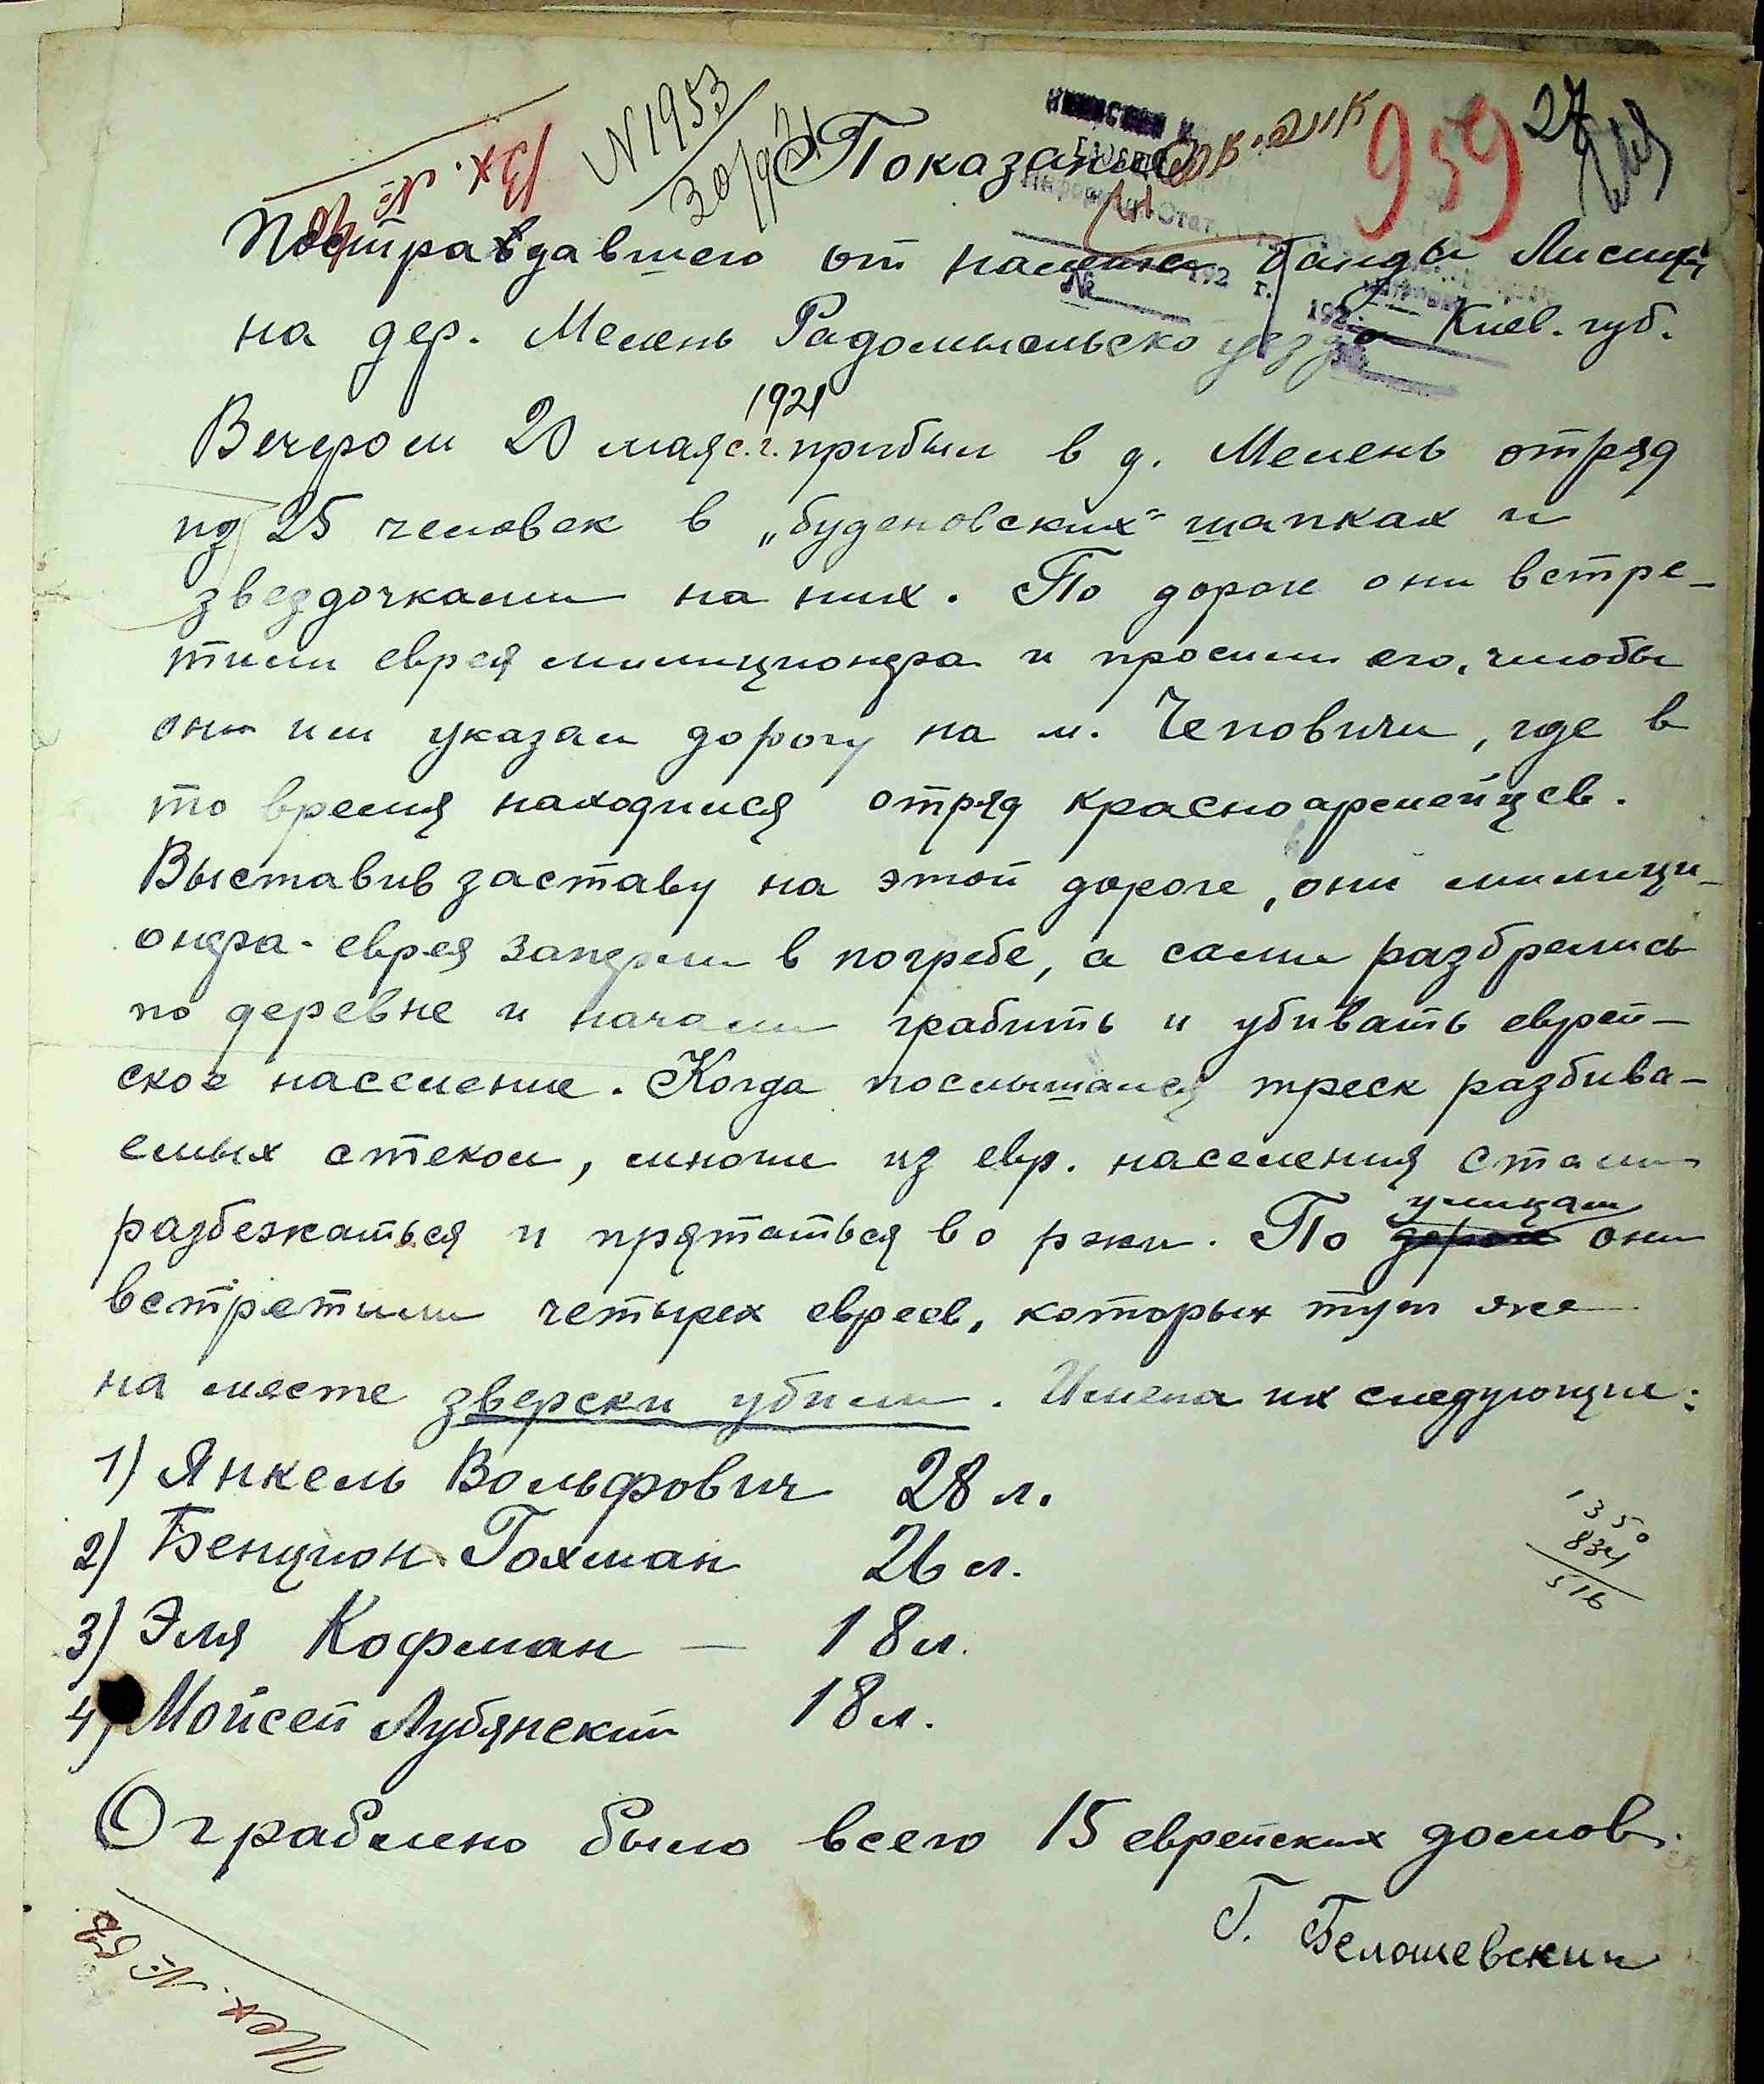 N 1953
30/9 21
959
27
Показание
Пострадавшего от налета банды Лисицы
на дер. Мелень Радомысльско уезда Киев. губ.
1921
Вечером 20 мая с.г. прибыл в д. Мелень отряд
из 25 человек в „буденовских" шапках и
звездочками на них. По дороге они встре-
тили еврея милиционэра и просили его, чтобы
он им указал дорогу на м. Чеповичи, где в
то время находился отряд красноармейцев.
Выставив заставу на этой дороге, они милици-
онэра-еврея заперли в погребе, а сами разбрелись
по деревне и начали грабить и убивать еврей-
ское население. Когда послышался треск разбива-
емых стекол, многие из евр. населения стали
разбежаться и прятаться во ржи. По улицам они
встретили четырех евреев, которых тут же
на месте зверски убили. Имена их следующие:
1) Янкель Вольфович 28 л.
2) Бенцион Гохман 26 л.
3) Эля Кофман — 18 л.
4) Мойсей Лубянский 18 л.
1350
834
516
Ограблено было всего 15 еврейских домов.
Г. Белошевский
Исх. №